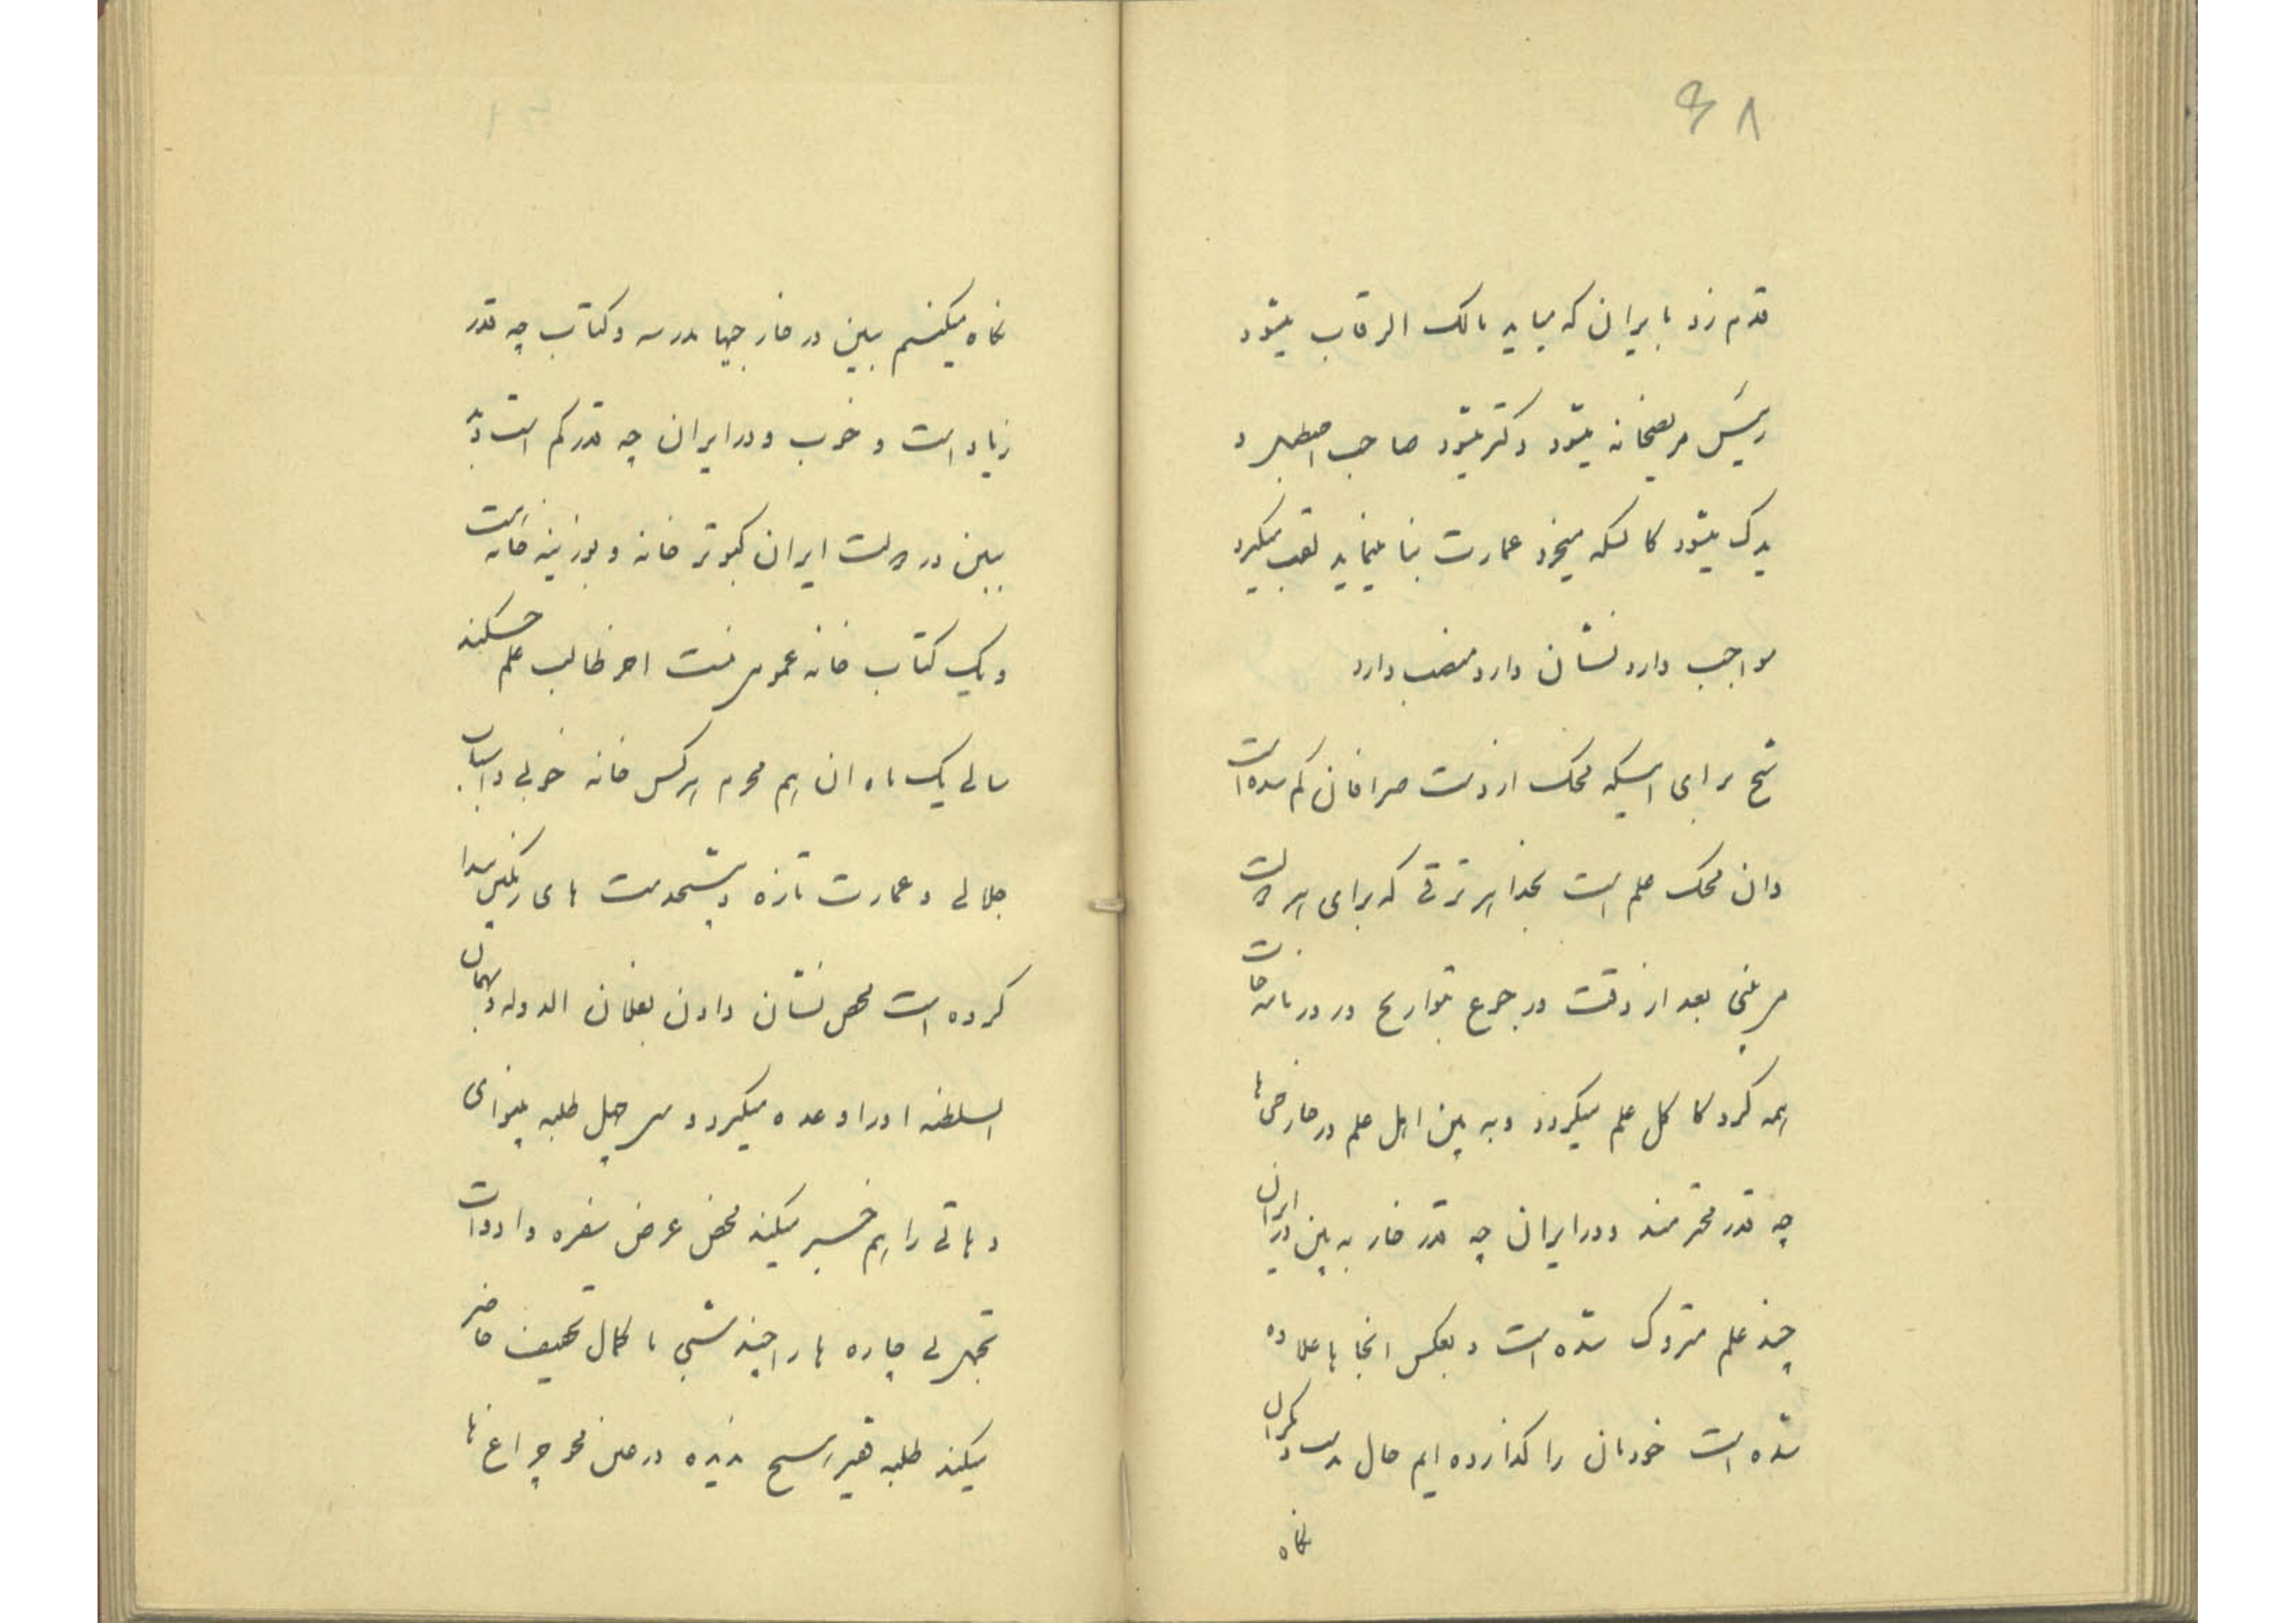 ۴۸
قدم زد بایران که میاید مالک الرقاب میشود
رئیس مریضخانه میشود دکتر میشود صاحب اصطبل و
یدک میشود کالسکه میخرد عمارت بنا مینماید لقب میگیرد
مواجب دارد نشان دارد منصب دارد
شیخ برای اینکه محک از دست صرافان کم شده است
و ان محک علم است بخدا هر ترقی که برای هر ملت
می بینی بعد از دقت و رجوع بتواریخ و روزنامه جات
همه گرد کاکل علم میگردد و به بین اهل علم در خارجی ها
چه قدر محترمند و در ایران چه قدر خار به بین در ایران
چند علم متروک شده است و بعکس انجا ها علاوه
شده است خودمان را گذارده ایم حال دیگران
نگاه
نگاه میکنیم ببین در خارجیها مدرسه و کتاب چه قدر
زیاد است و خوب و در ایران چه قدر کم است و بد
ببین در ملت ایران کبوتر خانه و بوزینه خانه است
و یک کتاب خانه عمومی نیست اخر طالب علم چه کند
سالی یک ماه ان هم محرم هر کس خانه خوبی و اسباب
جلالی و عمارت تازه و پیشخدمت های رنگین پیدا
کرده است محض نشان دادن بفلان الدوله و بهمان
السلطنه او را وعده میگیرد و سی چهل طلبه بینوای
دهاتی را هم خبر میکند محض عرض سفره و ادوات
تجملی چاره ها را چند شبی با کمال تخفیف حاضر
میکند طلبه فقیر هیچ ندیده در عین محو چراغ ها